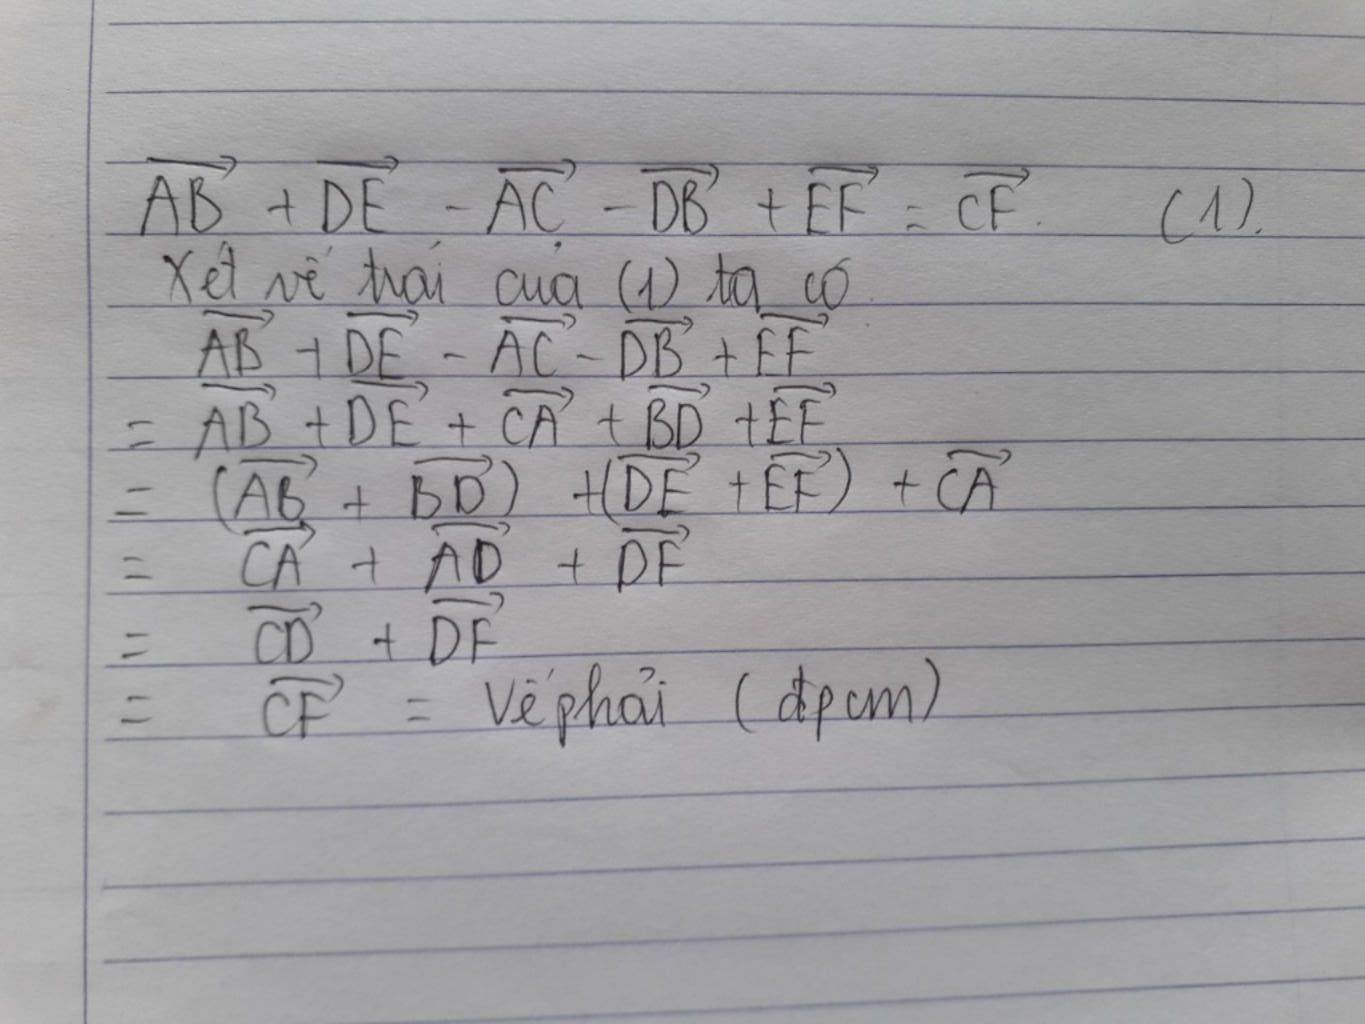 $\overrightarrow{AB} + \overrightarrow{DE} - \overrightarrow{AC} - \overrightarrow{DB} + \overrightarrow{EF} = \overrightarrow{CF}$. (1).
Xét vế trái của (1) ta có
$\overrightarrow{AB} + \overrightarrow{DE} - \overrightarrow{AC} - \overrightarrow{DB} + \overrightarrow{EF}$
$= \overrightarrow{AB} + \overrightarrow{DE} + \overrightarrow{CA} + \overrightarrow{BD} + \overrightarrow{EF}$
$= (\overrightarrow{AB} + \overrightarrow{BD}) + (\overrightarrow{DE} + \overrightarrow{EF}) + \overrightarrow{CA}$
$= \overrightarrow{CA} + \overrightarrow{AD} + \overrightarrow{DF}$
$= \overrightarrow{CD} + \overrightarrow{DF}$
$= \overrightarrow{CF}$ = Vế phải (đpcm)